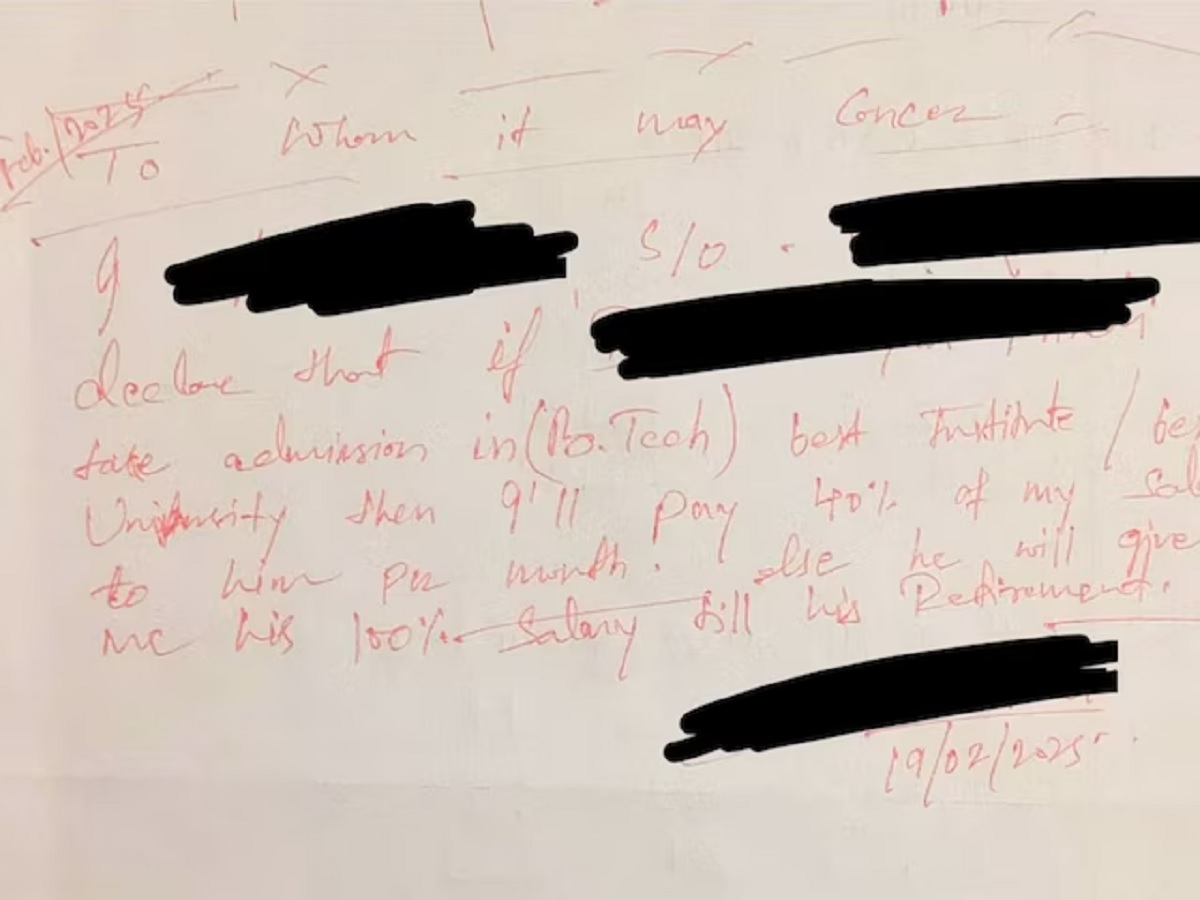 Feb. 2025
To Whom it may Concer
I S/O .
declare that if
take admission in (B.Tech) best Institute /
University then I'll pay 40% of my
to him per month. else he will give
me his 100% Salary till his Retirement.
19/02/2025